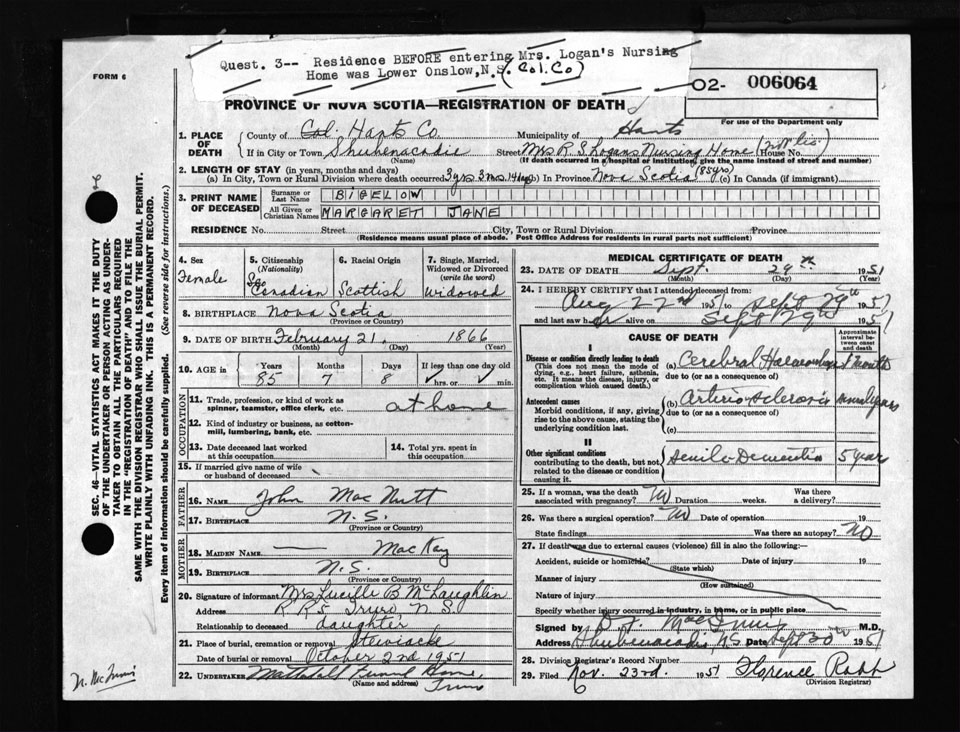 Quest. 3-- Residence BEFORE entering Mrs. Logan's Nursing
Home was Lower Onslow,N.S. (Col. Co)
FORM 6
O2- 006064
PROVINCE OF NOVA SCOTIA—REGISTRATION OF DEATH
For use of the Department only
SEC. 46—VITAL STATISTICS ACT MAKES IT THE DUTY
OF THE UNDERTAKER OR PERSON ACTING AS UNDER-
TAKER TO OBTAIN ALL THE PARTICULARS REQUIRED
IN THE "REGISTRATION OF DEATH" AND TO FILE THE
SAME WITH THE DIVISION REGISTRAR WHO SHALL ISSUE THE BURIAL PERMIT.
WRITE PLAINLY WITH UNFADING INK. THIS IS A PERMANENT RECORD.
Every item of information should be carefully supplied. (See reverse side for instructions.)
1. PLACE OF DEATH
County of Col. Hants Co. Municipality of Hants
If in City or Town Shubenacadie Street Mrs R S Logans Nursing Home House No.
(Name) (If death occurred in a hospital or institution, give the name instead of street and number)
2. LENGTH OF STAY (in years, months and days)
(a) In City, Town or Rural Division where death occurred 3 yrs 3 mos. 14 days (b) In Province Nova Scotia (85 yrs) (c) In Canada (if immigrant)
3. PRINT NAME OF DECEASED
Surname or Last Name BIGELOW
All Given or Christian Names MARGARET JANE
RESIDENCE No. Street City, Town or Rural Division Province
(Residence means usual place of abode. Post Office Address for residents in rural parts not sufficient)
4. Sex
Female
5. Citizenship
(Nationality)
Canadian
6. Racial Origin
Scottish
7. Single, Married,
Widowed or Divorced
(write the word)
Widowed
8. BIRTHPLACE Nova Scotia
(Province or Country)
9. DATE OF BIRTH February 21. 1866
(Month) (Day) (Year)
10. AGE in Years Months Days If less than one day old
85 7 8 hrs. or min.
OCCUPATION
11. Trade, profession, or kind of work as
spinner, teamster, office clerk, etc. at home
12. Kind of industry or business, as cotton-
mill, lumbering, bank, etc.
13. Date deceased last worked
at this occupation
14. Total yrs. spent in
this occupation
15. If married give name of wife
or husband of deceased
FATHER
16. NAME John Mac Nutt
17. BIRTHPLACE N. S.
(Province or Country)
MOTHER
18. MAIDEN NAME — Mac Kay
19. BIRTHPLACE N. S.
(Province or Country)
20. Signature of informant Mrs Lucille B McLaughlin
Address R R 5 Truro, N. S.
Relationship to deceased daughter
21. Place of burial, cremation or removal Stewiacke
Date of burial or removal October 2nd 1951
22. UNDERTAKER Home
(Name and address) Truro
MEDICAL CERTIFICATE OF DEATH
23. DATE OF DEATH Sept. 29th 1951
(Month) (Day) (Year)
24. I HEREBY CERTIFY that I attended deceased from:
Aug 22nd 1951 to Sept 29th 1951
and last saw her alive on Sept 29th 1951
CAUSE OF DEATH
Approximate
interval be-
tween onset
and death
I
Disease or condition directly leading to death
(This does not mean the mode of
dying, e.g., heart failure, asthenia,
etc. It means the disease, injury, or
complication which caused death.)
(a) Cerebral 1 month
due to (or as a consequence)
Antecedent causes
Morbid conditions, if any, giving
rise to the above cause, stating the
underlying condition last.
(b) Arterio Sclerosis several years
due to (or as a consequence)
(c)
II
Other significant conditions
contributing to the death, but not
related to the disease or condition
causing it.
Senile Dementia 5 year
25. If a woman, was the death
associated with pregnancy? No Duration weeks. Was there
a delivery?
26. Was there a surgical operation? No Date of operation 19
State findings Was there an autopsy? No
27. If death was due to external causes (violence) fill in also the following:—
Accident, suicide or homicide? Date of injury 19
(State which)
Manner of injury
(How sustained)
Nature of injury
Specify whether injury occurred in industry, in home, or in public place
Signed by M.D.
Address Shubenacadie N.S. Date Sept 30th 1951
28. Division Registrar's Record Number
29. Filed Nov. 23rd. 1951 Florence
6 (Division Registrar)